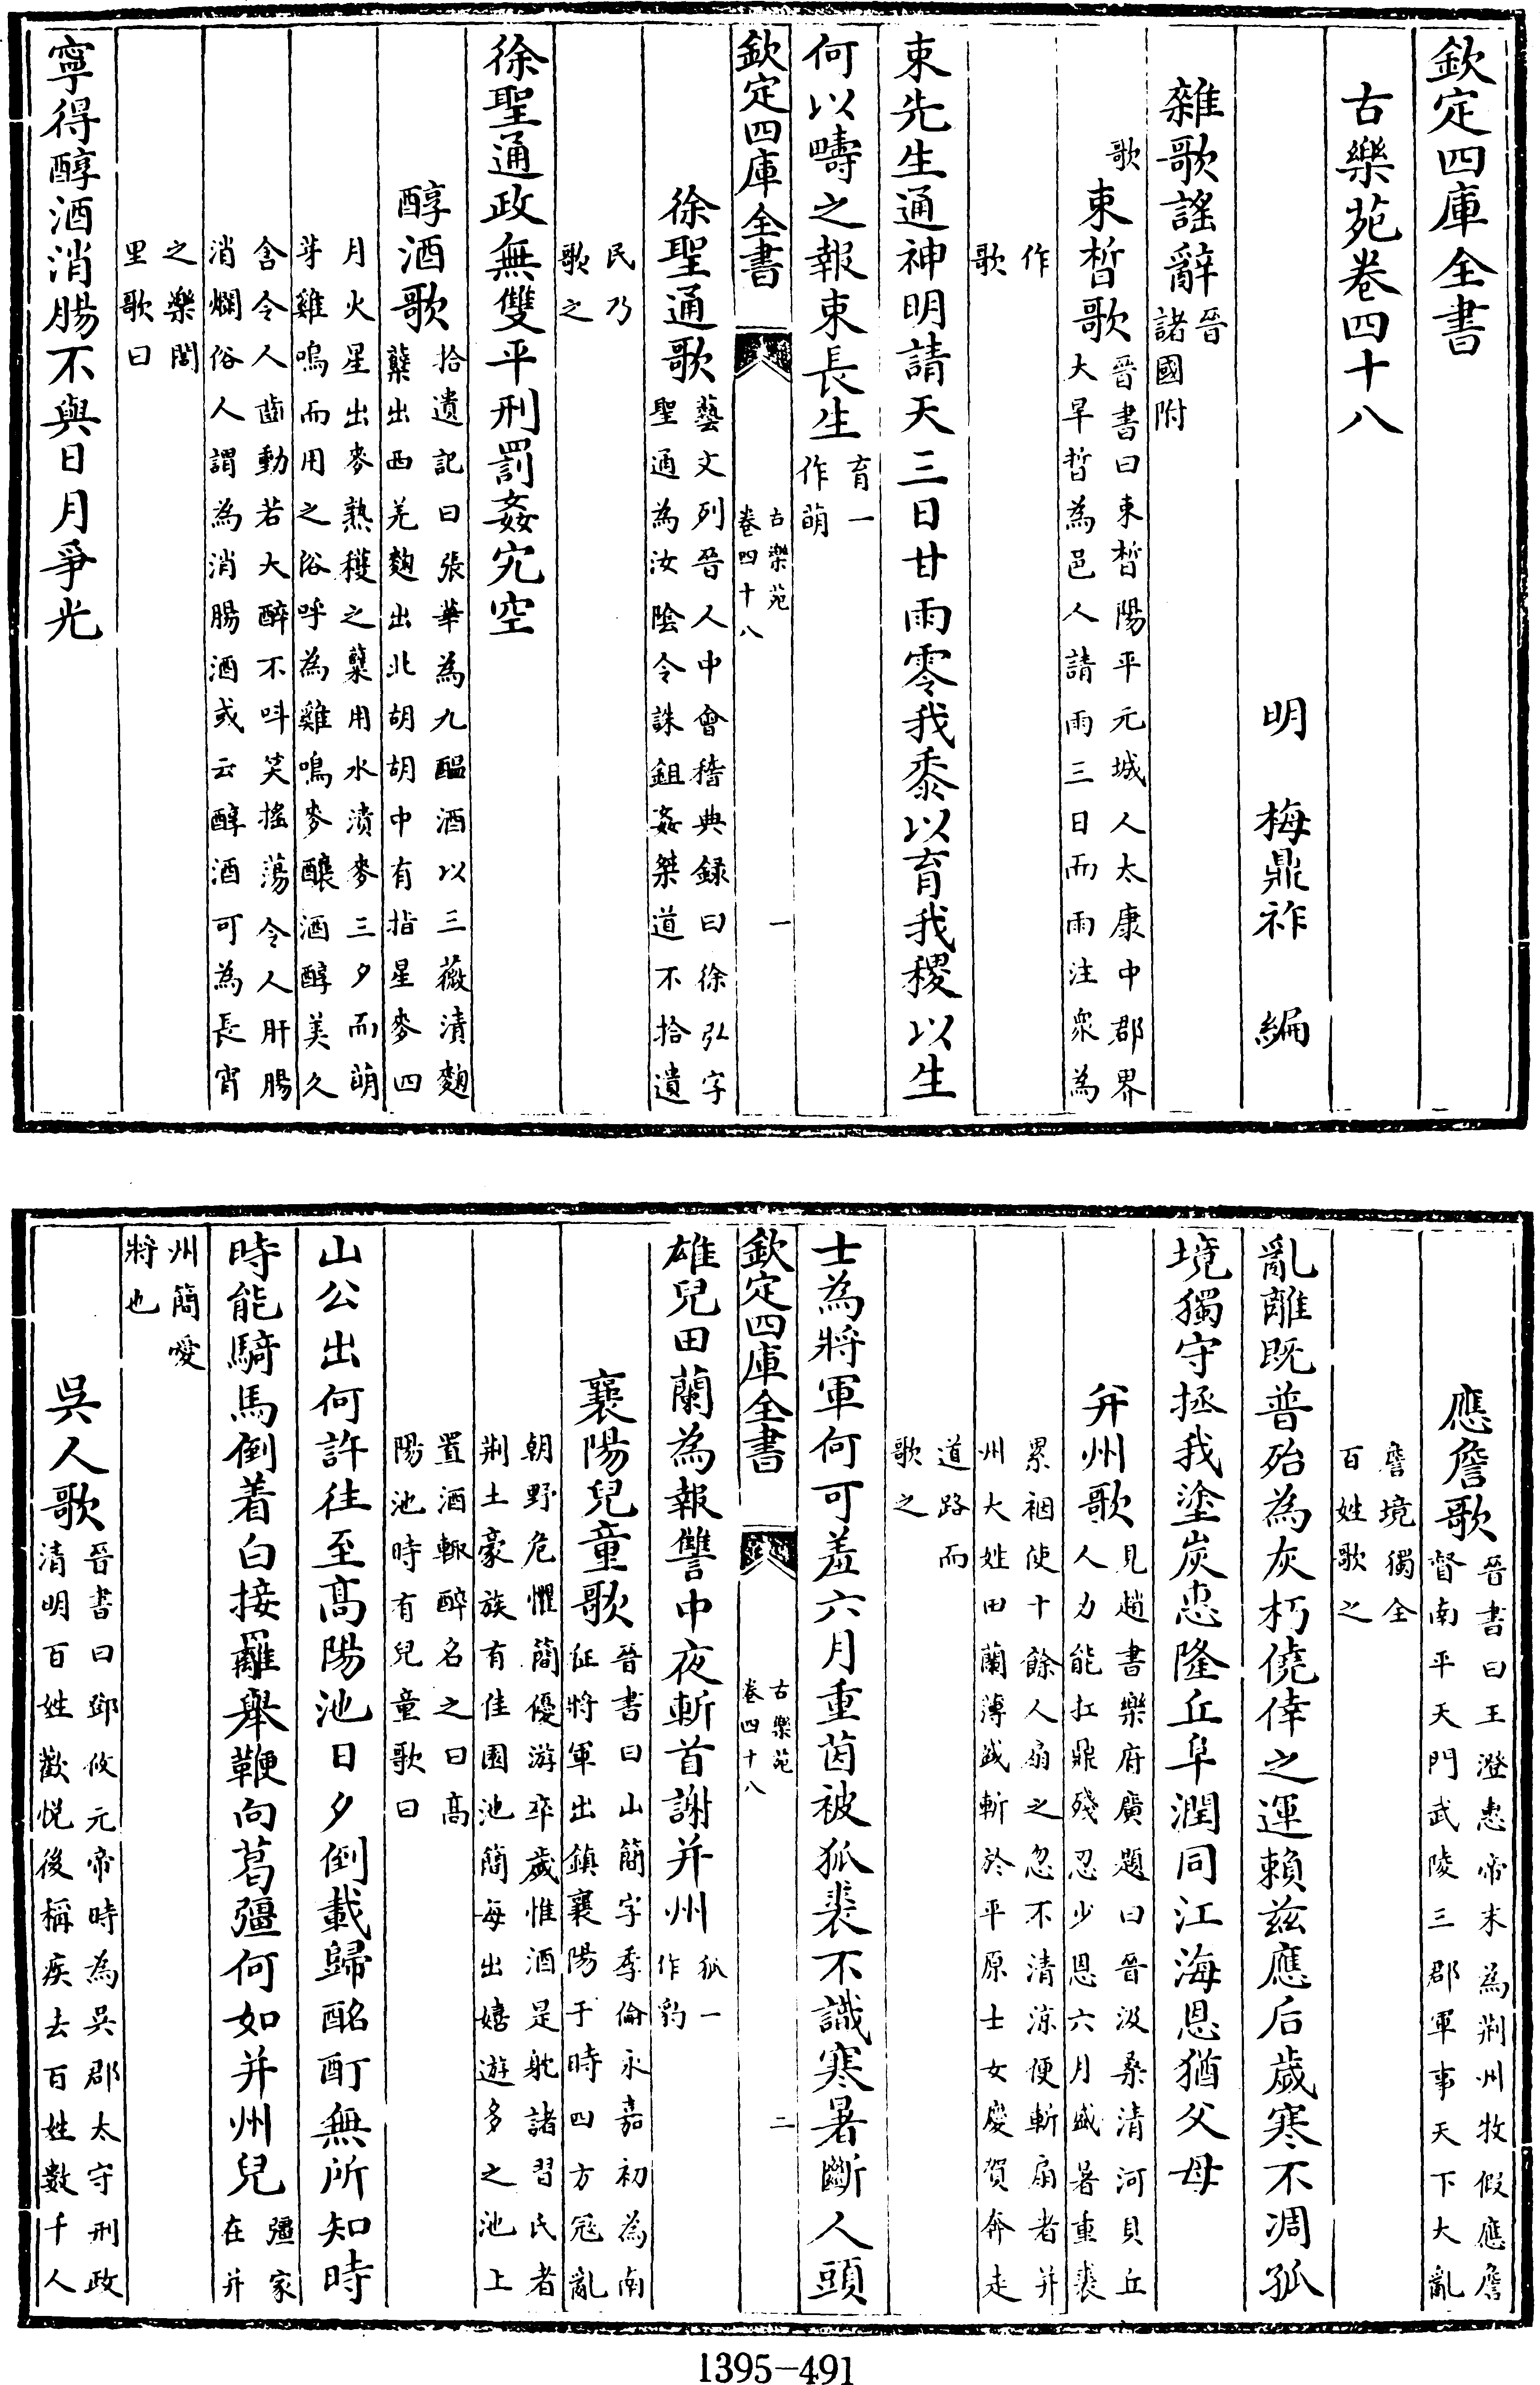 欽定四庫全書
古樂苑卷四十八
明 梅鼎祚 編
雜歌謠辭晉諸國附
歌
束晳歌晉書曰束晳陽平元城人太康中郡界
大旱晳為邑人請雨三日而雨注衆為
作
歌
束先生通神明請天三日甘雨零我黍以育我稷以生
何以疇之報束長生育一作萌
欽定四庫全書
古樂苑
卷四十八
一
徐聖通歌藝文列晉人中會稽典録曰徐弘字
聖通為汝陰令誅鉏姦桀道不拾遺
民乃
歌之
徐聖通政無雙平刑罰姦宄空
醇酒歌拾遺記曰張華為九醖酒以三薇漬麴
蘖出西羌麴出北胡胡中有指星麥四
月火星出麥熟穫之蘖用水漬麥三夕而萌
芽雞鳴而用之俗呼為雞鳴麥釀酒醇美久
含令人齒動若大醉不叫笑搖蕩令人肝腸
消爛俗人謂為消腸酒或云醇酒可為長宵
之樂閭
里歌曰
寧得醇酒消腸不與日月爭光
應詹歌晉書曰王澄惠帝末為荆州牧假應詹
督南平天門武陵三郡軍事天下大亂
詹境獨全
百姓歌之
亂離既普殆為灰朽僥倖之運賴兹應后歲寒不凋孤
境獨守拯我塗炭惠隆丘阜潤同江海恩猶父母
并州歌見趙書樂府廣題曰晉汲桑清河貝丘
人力能扛鼎殘忍少恩六月盛暑重裘
累裀使十餘人扇之忽不清涼便斬扇者并
州大姓田蘭薄盛斬於平原士女慶賀奔走
道路而
歌之
士為將軍何可羞六月重茵被狐裘不識寒暑斷人頭
欽定四庫全書
古樂苑
卷四十八
二
雄兒田蘭為報讐中夜斬首謝并州狐一作豹
襄陽兒童歌晉書曰山簡字季倫永嘉初為南
征將軍出鎮襄陽于時四方冦亂
朝野危懼簡優游卒歲惟酒是躭諸習氏者
荆土豪族有佳園池簡每出嬉遊多之池上
置酒輙醉名之曰高
陽池時有兒童歌曰
山公出何許往至高陽池日夕倒載歸酩酊無所知時
時能騎馬倒着白接䍦舉鞭向葛彊何如并州兒彊家在并
州簡愛
將也
吳人歌晉書曰鄧攸元帝時為吳郡太守刑政
清明百姓歡悦後稱疾去百姓數千人
1395—491